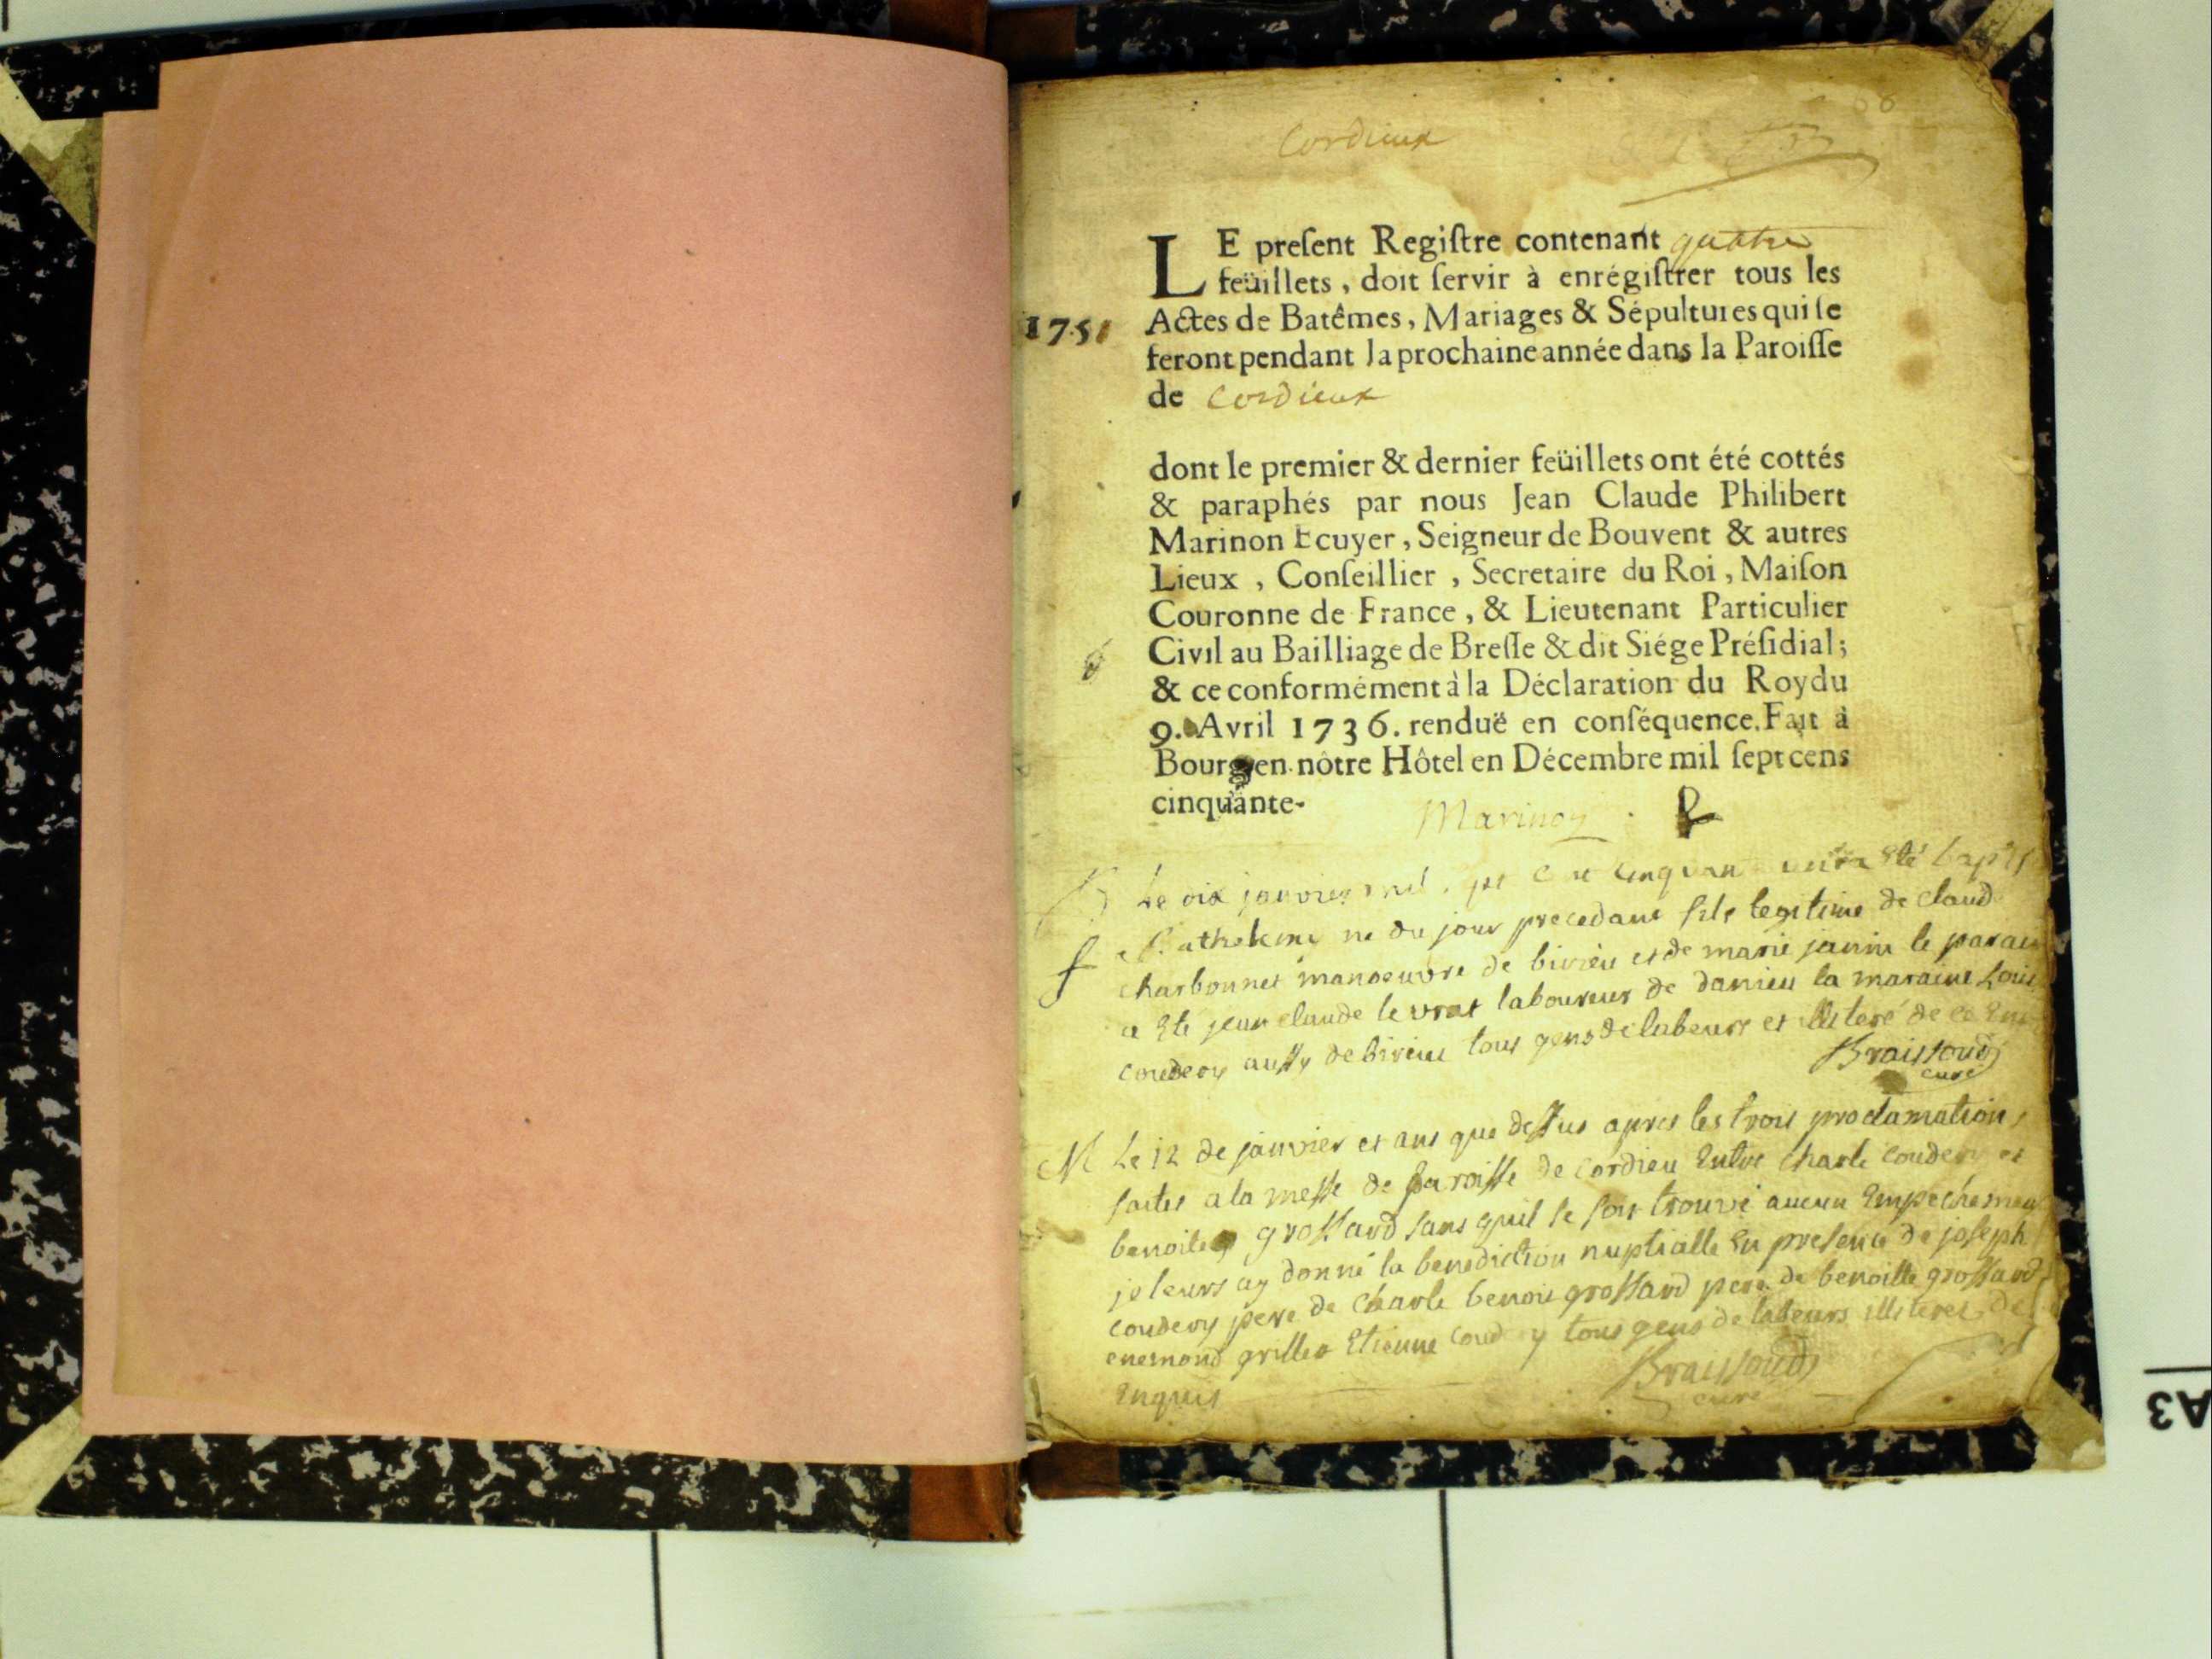 Cordieux
LE preſent Regiſtre contenant quatre
feüillets, doit ſervir à enrégiſtrer tous les
1751 Actes de Batêmes, Mariages & Sépultures qui ſe
feront pendant la prochaine année dans la Paroiſſe
de Cordieux
dont le premier & dernier feüillets ont été cottés
& paraphés par nous Jean Claude Philibert
Marinon Ecuyer, Seigneur de Bouvent & autres
Lieux, Conſeillier, Secretaire du Roi, Maiſon
Couronne de France, & Lieutenant Particulier
Civil au Bailliage de Breſſe & dit Siége Préſidial;
& ce conformément à la Déclaration du Roy du
9. Avril 1736. renduë en conſéquence. Fait à
Bourg en nôtre Hôtel en Décembre mil ſept cens
cinquante-
Marinon
B Le dix janvier mil cinquan eté
ne du jour precedant fils legitime de claud
charbonnet manoeuvre de birieu et de marie janin le parain
a eté jean claude levrat laboureur de danieu la maraine
coudery aussy de birieu tous gens de labeurs et de ce
Braissoud
curé
M Le 12 de janvier et ans que dessus apres les trois proclamations
faites a la messe de paroisse de cordieu entre charle coudery et
benoite grossard sans quil se soit trouvé aucun empechement
je leurs ay donné la benediction nuptialle en presence de joseph
coudery pere de charle benoit grossard pere de benoitte grossard
enemond grillet etienne coudery tous gens de labeurs illiteres de
enquis
Braissoud
curé
A3